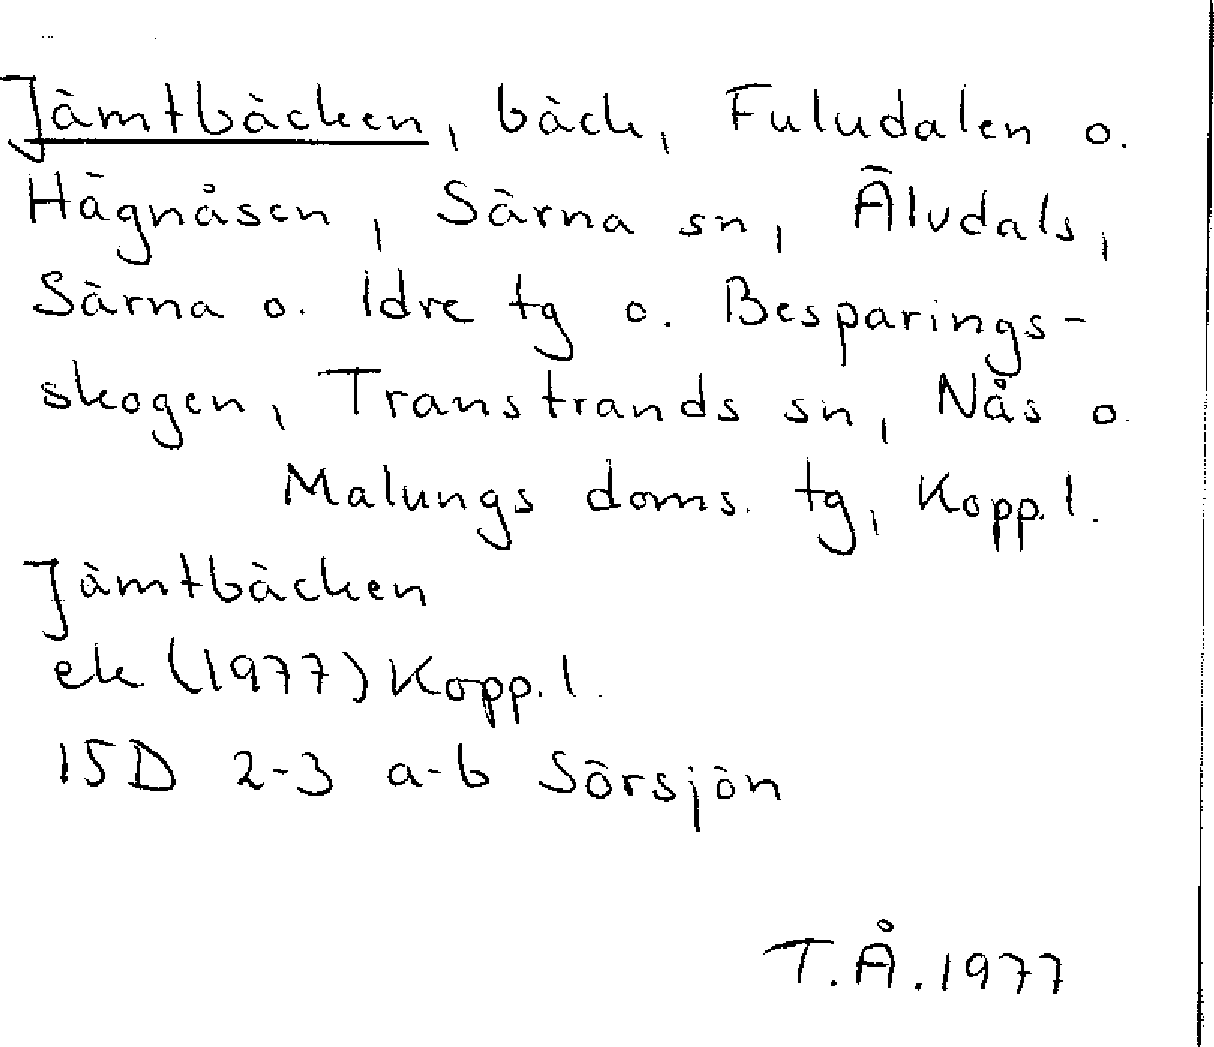 Jämtbäcken, bäck, Fuludalen o.
Hägnåsen, Särna sn, Älvdals,
Särna o. Idre tg o. Besparings-
skogen, Transtrands sn, Nås o.
Malungs doms. tg, Kopp.l.
Jämtbäcken
ek (1977) Kopp.l.
15D 2-3 a-b Sörsjön
T.Å.1977